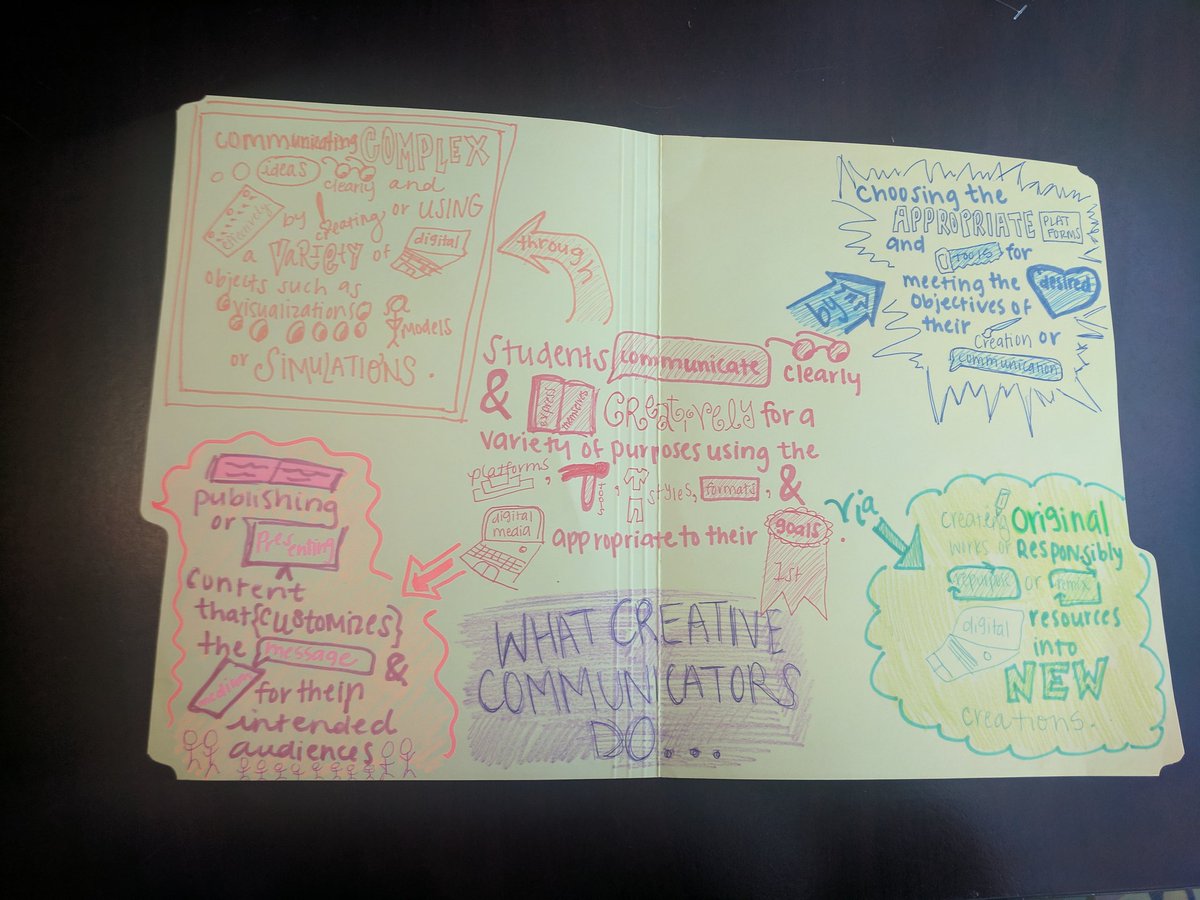 communicating COMPLEX
ideas clearly and
effectively by creating or USING
a VARIETY of digital
objects such as
visualizations Models
or SIMULATIONS.
through
choosing the
APPROPRIATE PLAT FORMS
and TOOLS for
meeting the desired
objectives of
their creation or
communication
by
students communicate clearly
& express themselves CREATIVELY for a
variety of purposes using the
platforms, TOOLS, styles, formats, &
digital media appropriate to their goals.
1st
publishing
or presenting
content
that {customizes}
the message &
medium for their
intended
audiences
via
creating original
works or RESPONSIBLY
repurpose or remix
digital resources
into
NEW
creations.
WHAT CREATIVE
COMMUNICATORS
DO....